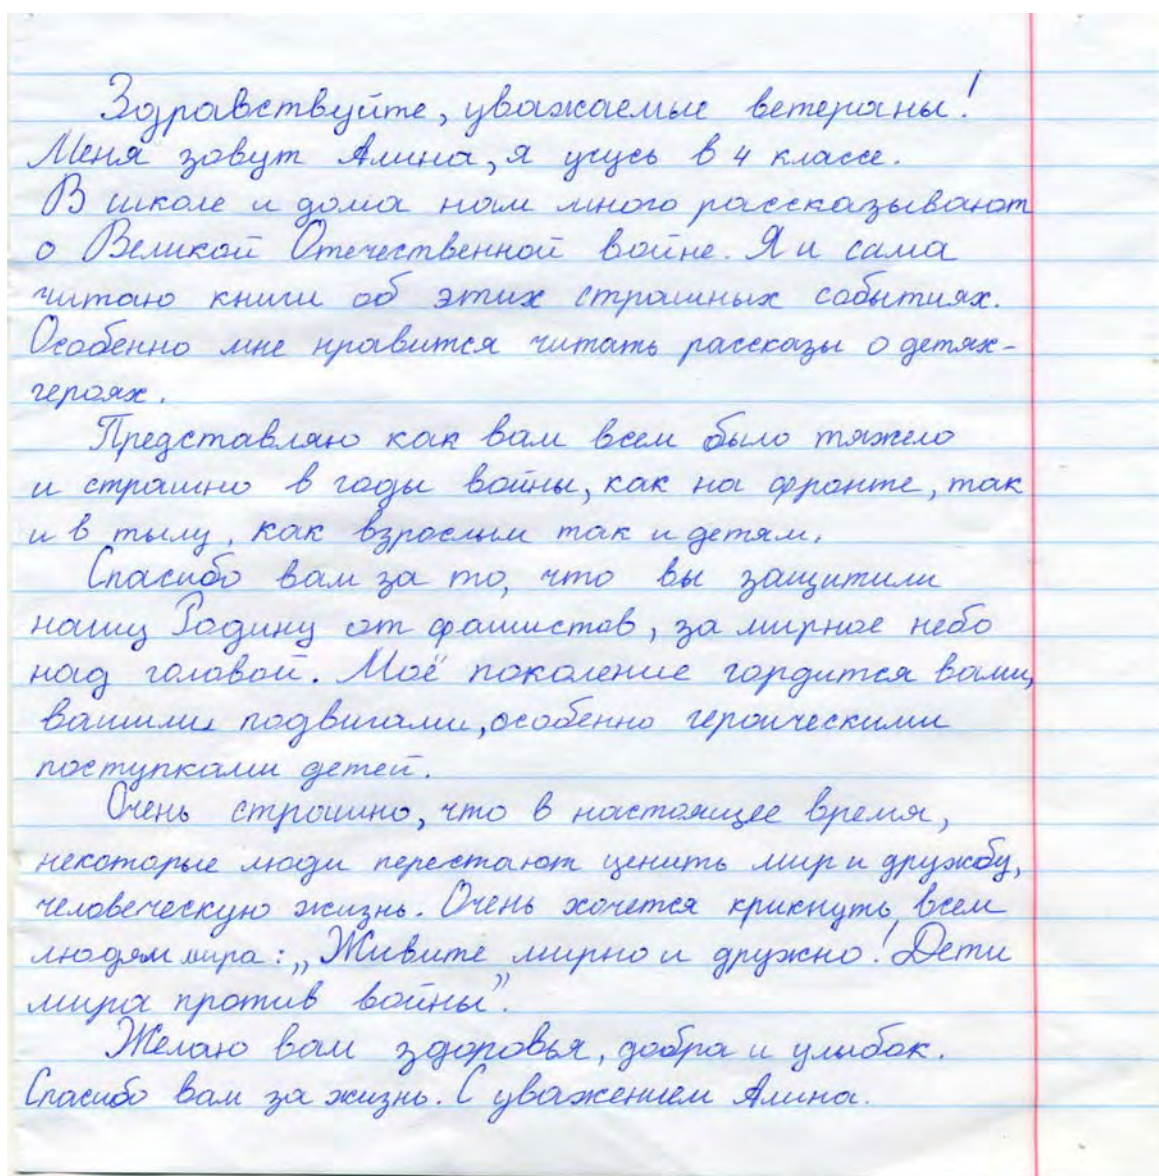 Здравствуйте, уважаемые ветераны!
Меня зовут Алина, я учусь в 4 классе.
В школе и дома нам много рассказывают
о Великой Отечественной войне. Я и сама
читаю книги об этих страшных событиях.
Особенно мне нравится читать рассказы о детях-
героях.
Представляю как вам всем было тяжело
и страшно в годы войны, как на фронте, так
и в тылу, как взрослым так и детям.
Спасибо вам за то, что вы защитили
нашу Родину от фашистов, за мирное небо
над головой. Моё поколение гордится вами,
вашими подвигами, особенно героическими
поступками детей.
Очень страшно, что в настоящее время,
некоторые люди перестают ценить мир и дружбу,
человеческую жизнь. Очень хочется крикнуть всем
людям мира: „Живите мирно и дружно! Дети
мира против войны”.
Желаю вам здоровья, добра и улыбок.
Спасибо вам за жизнь. С уважением Алина.